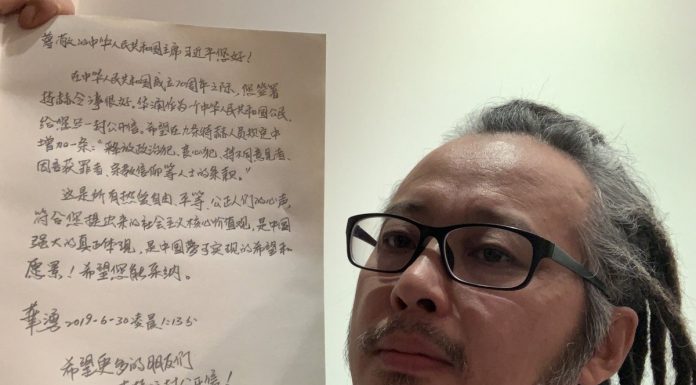 尊敬的中华人民共和国主席习近平您好!
在中华人民共和国成立70周年之际,您签署
特赦令凄很好。华涌作为一个中华人民共和国公民,
给您写一封公开信。希望在九条特赦人员规定中
增加一条:“释放政治犯、良心犯、持不同意见者、
因言获罪者、宗教信仰等人士的条款。”
这是所有热爱自由、平等、公正人们的心声,
符合您提出来的社会主义核心价值观,是中国
强大的真正体现,是中国梦实现的希望和
愿景!希望您能采纳。
華湧 2019-6-30凌晨1:13分
希望更多的朋友们
封公开信!